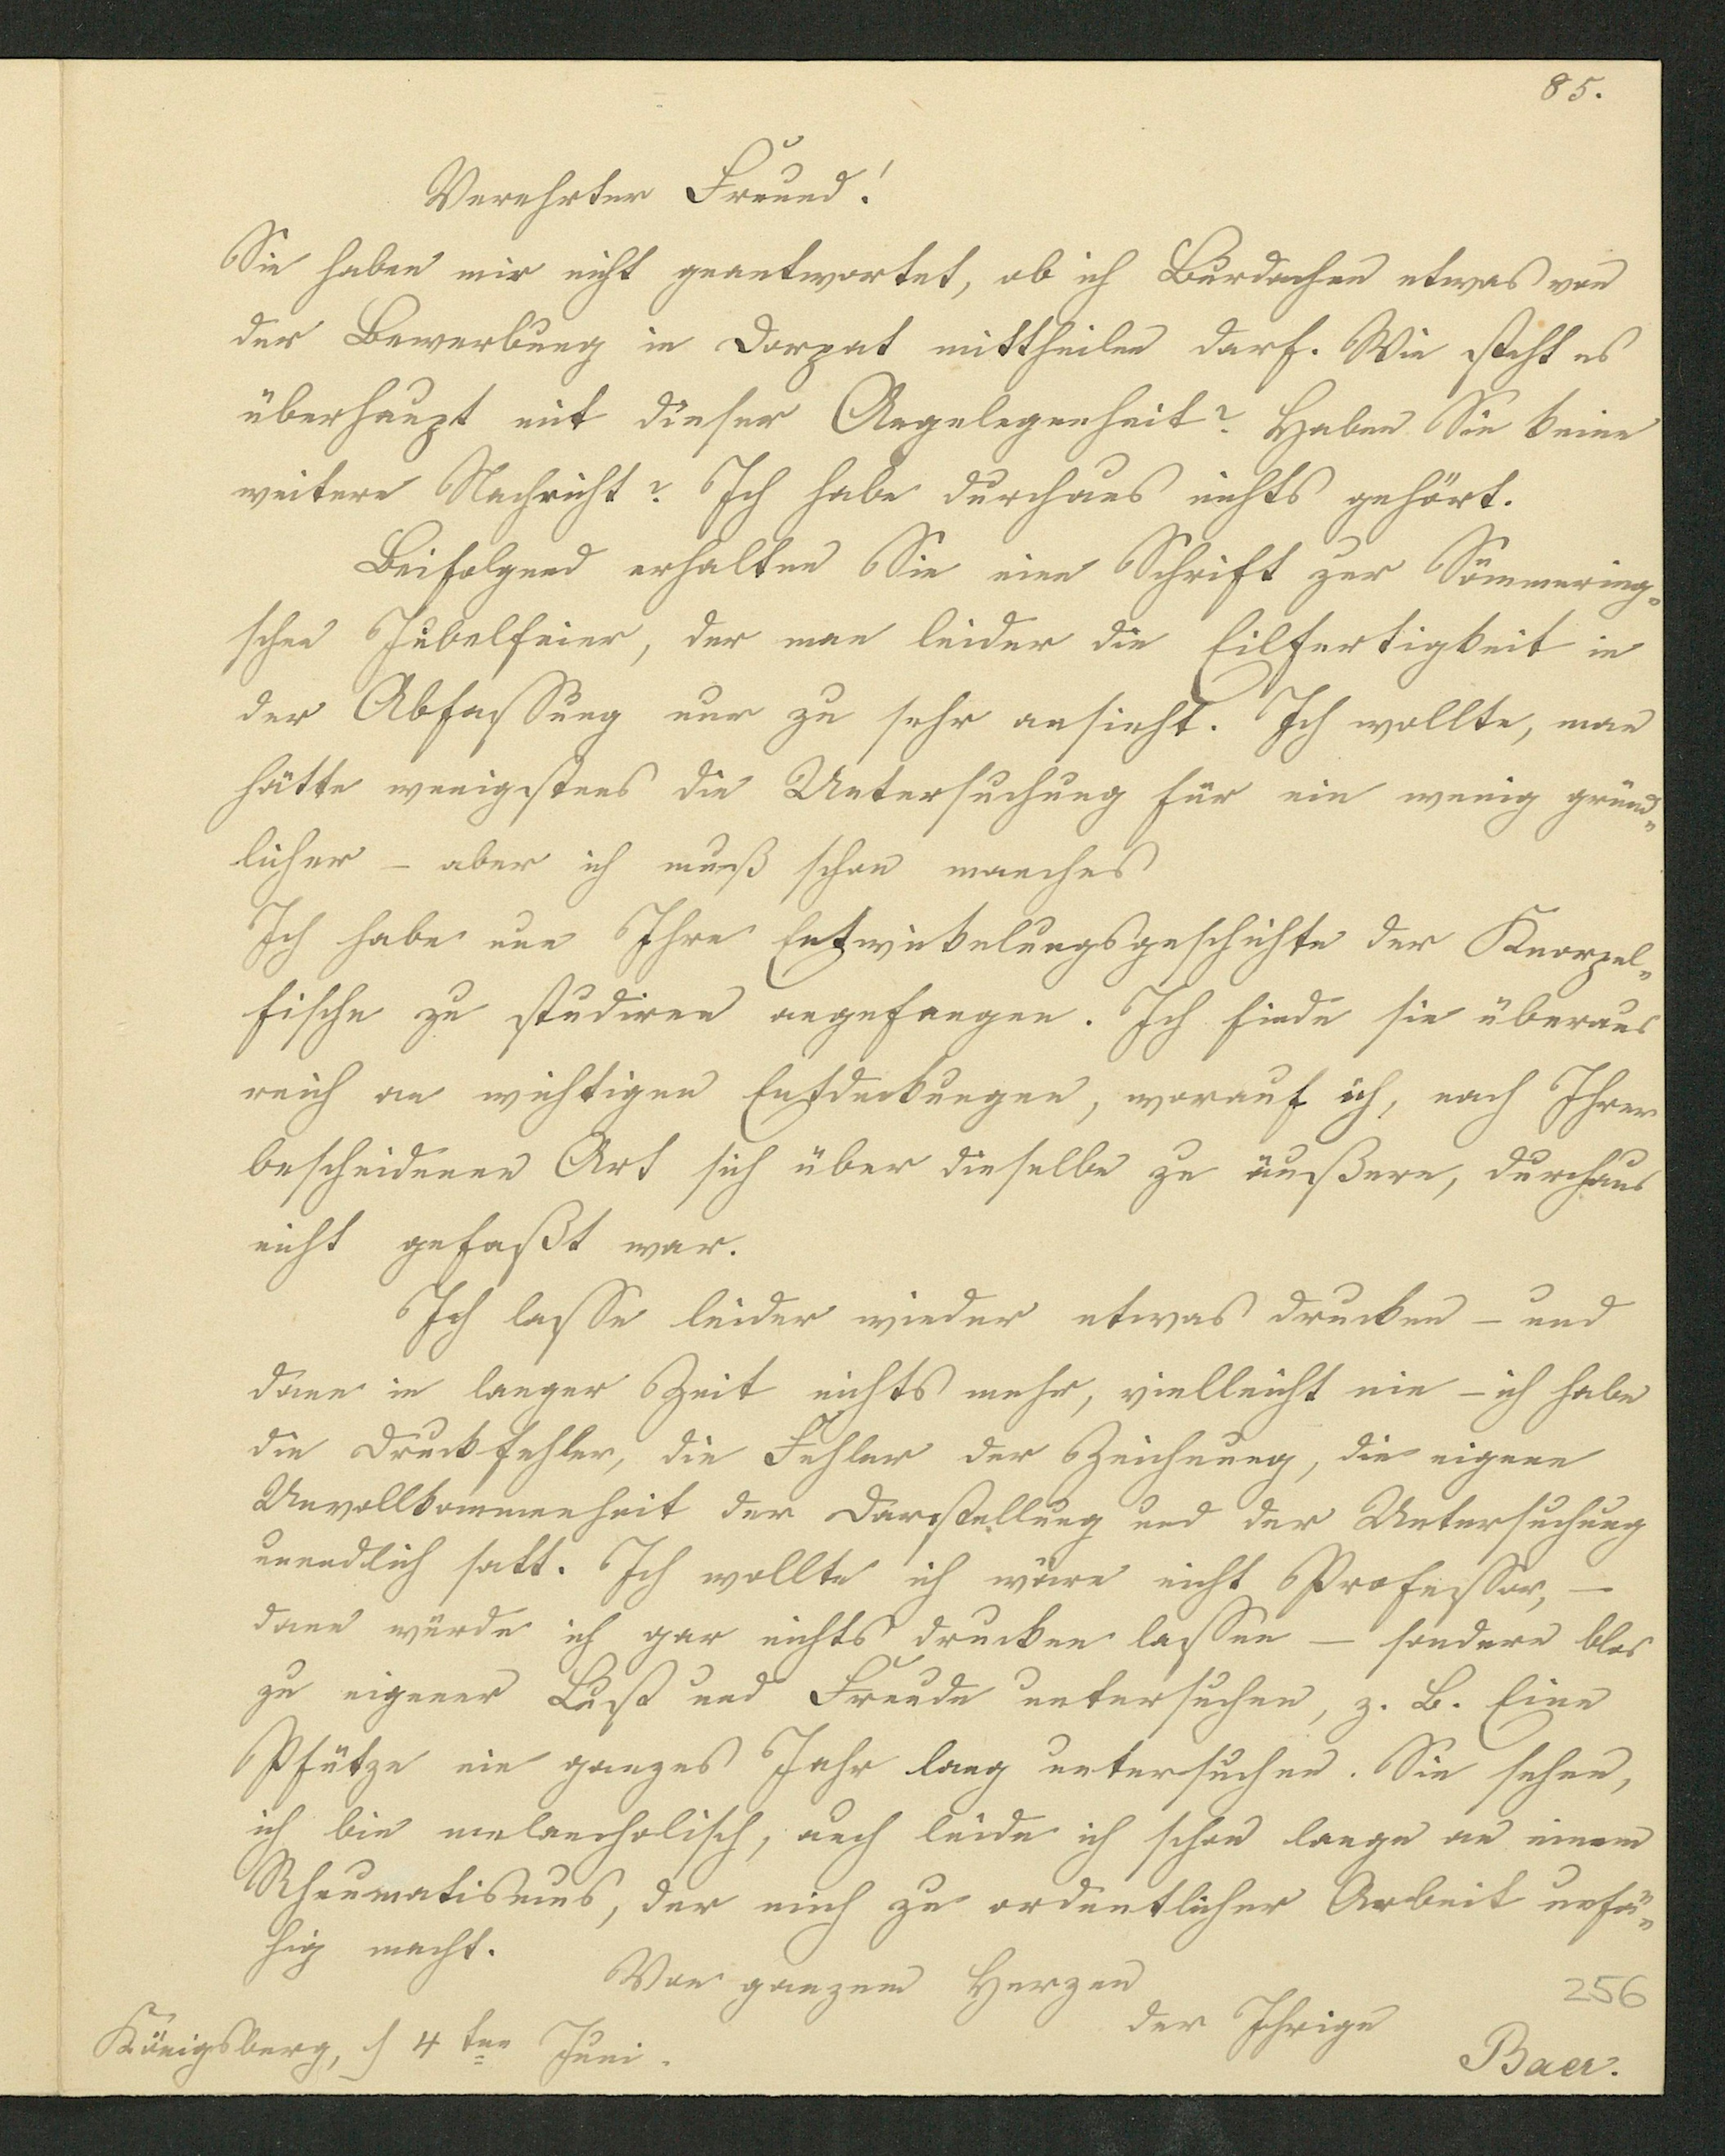 85.
Verehrter Freund!
Sie haben mir nicht geantwortet, ob ich Burdachen etwas von
der Bewerbung in Dorpat mittheilen darf. Wie steht es
überhaupt mit dieser Angelegenheit? Haben Sie keine
weitere Nachricht? Ich habe durchaus nichts gehört.
Beifolgend erhalten Sie eine Schrift zur Sömmering-
schen Jubelfeier, der man leider die Eilfertigkeit in
der Abfassung nur zu sehr ansieht. Ich wollte, man
hätte wenigstens die Untersuchung für ein wenig gründ-
licher – aber ich muß schon manches
Ich habe nun Ihre Entwickelungsgeschichte der Knorpel-
fische zu studiren angefangen. Ich finde sie überaus
reich an wichtigen Entdeckungen, worauf ich, nach Ihrer
bescheidenen Art sich über dieselbe zu äußern, durchaus
nicht gefaßt war.
Ich lasse leider wieder etwas drucken – und
dann in langer Zeit nichts mehr, vielleicht nie – ich habe
die Druckfehler, die Fehler der Zeichnung, die eigene
Unvollkommenheit der Darstellung und der Untersuchung
unendlich satt. Ich wollte ich wäre nicht Professor, –
dann würde ich gar nichts drucken lassen – sondern blos
zu eigener Lust und Freude untersuchen, z. B. Eine
Pfütze ein ganzes Jahr lang untersuchen. Sie sehen,
ich bin melancholisch, auch leide ich schon lange an einem
Rheumatismus, der mich zu ordentlicher Arbeit unfä-
hig macht.
Von ganzem Herzen
256
der Ihrige
Königsberg, d 4 ten Juni.
Baer.